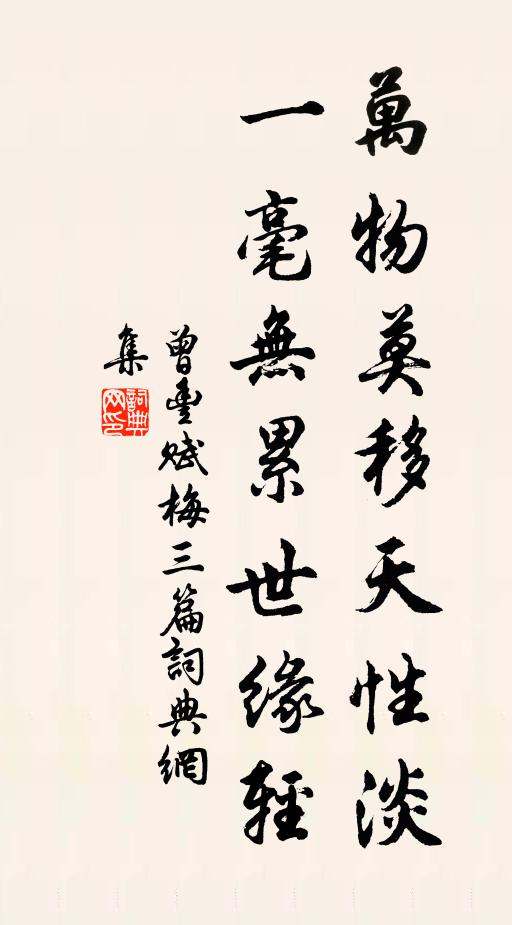 萬物莫移天性淡
一毫無累世緣輕
曾豐賦梅三篇詞典網
集
詞典網印